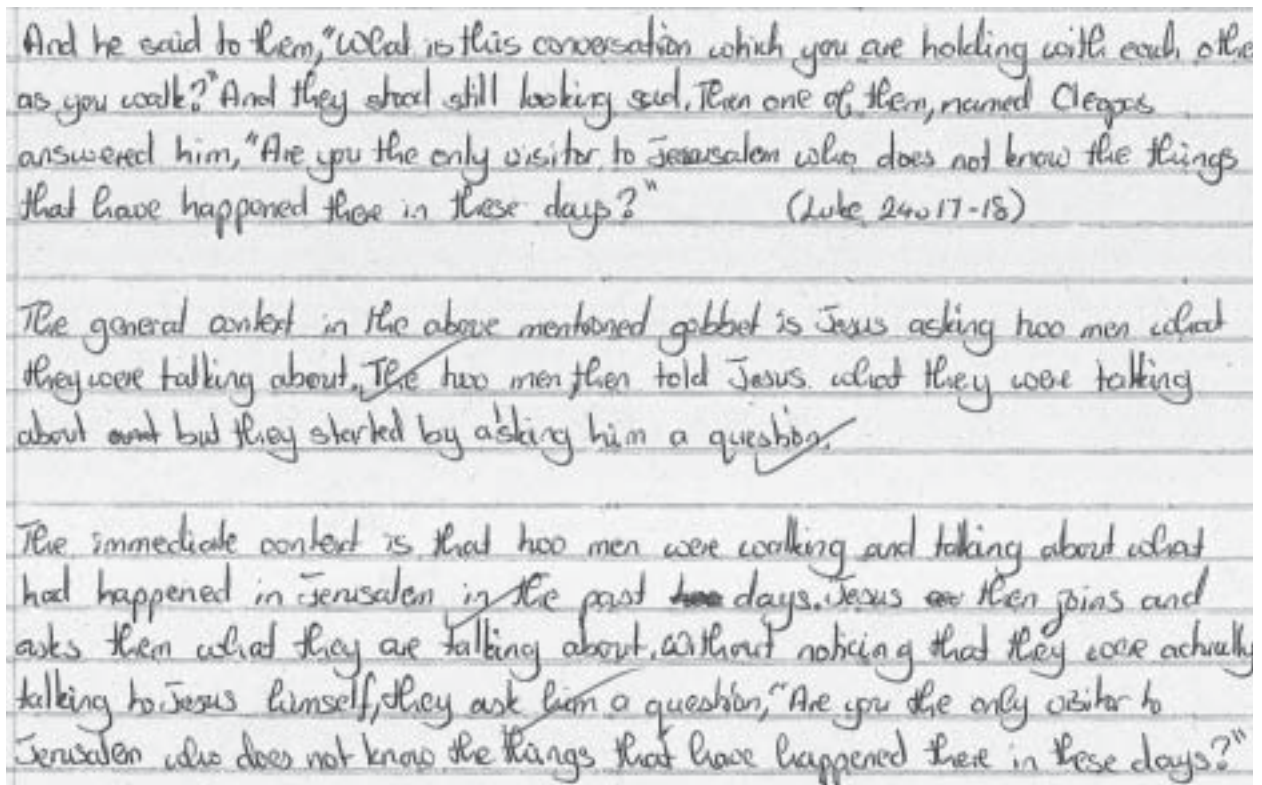 And he said to them, "What is this conversation which you are holding with each othe
as you walk?" And they stood still looking sad. Then one of them, named Cleopas
answered him, "Are you the only visitor to Jerusalem who does not know the things
that have happened there in these days?" (Luke 24:17-18)
The general context in the above mentioned gobbet is Jesus asking two men what
they were talking about. The two men, then told Jesus what they were talking
about but they started by asking him a question.
The immediate context is that two men were walking and talking about what
had happened in Jerusalem in the past days. Jesus then joins and
asks them what they are talking about. Without noticing that they were actually
talking to Jesus himself, they ask him a question, "Are you the only visitor to
Jerusalem who does not know the things that have happened there in these days?"